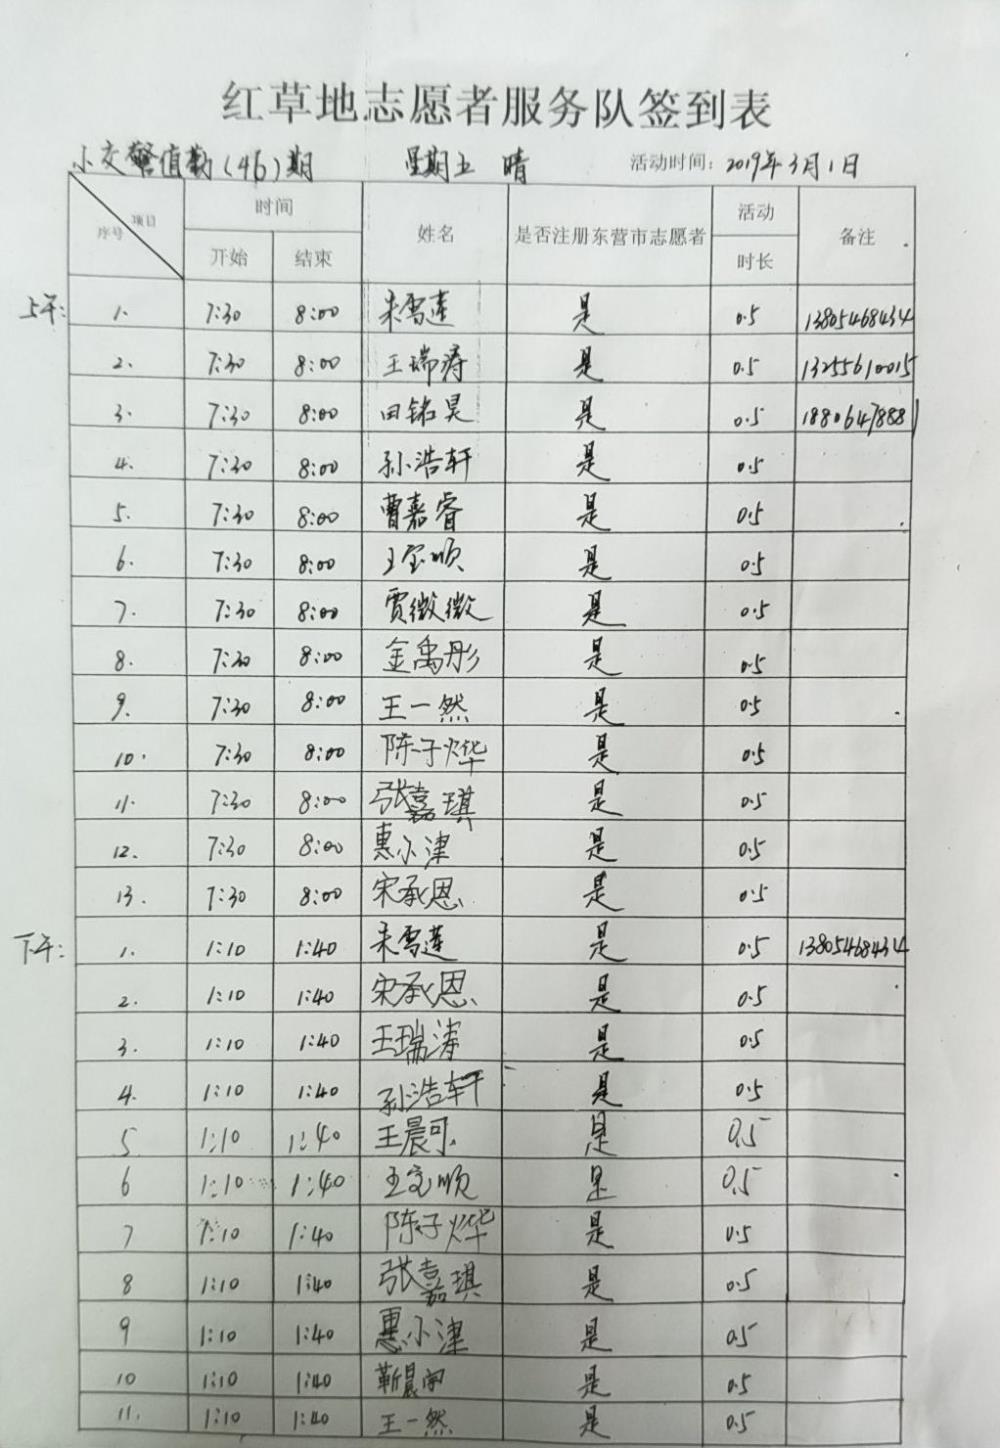 红草地志愿者服务队签到表
小交警值勤(46)期 星期五 晴 活动时间: 2019年3月1日
项目 序号 时间 姓名 是否注册东营市志愿者 活动 备注
开始 结束 时长
上午: 1. 7:30 8:00 朱雪莲 是 0.5 13805468434
2. 7:30 8:00 王瑞涛 是 0.5 13255610015
3. 7:30 8:00 田铭昊 是 0.5 18806478881
4. 7:30 8:00 孙浩轩 是 0.5
5. 7:30 8:00 曹嘉睿 是 0.5
6. 7:30 8:00 王宝顺 是 0.5
7. 7:30 8:00 贾微微 是 0.5
8. 7:30 8:00 金禹彤 是 0.5
9. 7:30 8:00 王一然 是 0.5
10. 7:30 8:00 陈子烨 是 0.5
11. 7:30 8:00 张嘉琪 是 0.5
12. 7:30 8:00 惠小津 是 0.5
13. 7:30 8:00 宋承恩 是 0.5
下午: 1. 1:10 1:40 朱雪莲 是 0.5 13805468434
2. 1:10 1:40 宋承恩 是 0.5
3. 1:10 1:40 王瑞涛 是 0.5
4. 1:10 1:40 孙浩轩 是 0.5
5 1:10 1:40 王晨可 是 0.5
6 1:10 1:40 王宝顺 是 0.5
7 1:10 1:40 陈子烨 是 0.5
8 1:10 1:40 张嘉琪 是 0.5
9 1:10 1:40 惠小津 是 0.5
10 1:10 1:40 是 0.5
11. 1:10 1:40 王一然 是 0.5